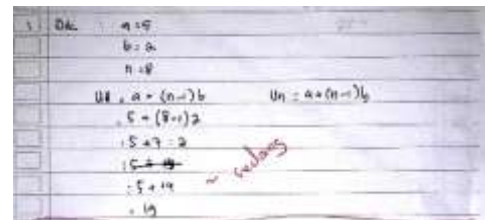 1 Dik : a = 5
b = 2
n = 8
U8 = a + (n-1)b Un = a + (n-1)b
= 5 + (8-1)2
= 5 + 7 = 2
= 5 +
= 5 + 14
= 19
~ sedang